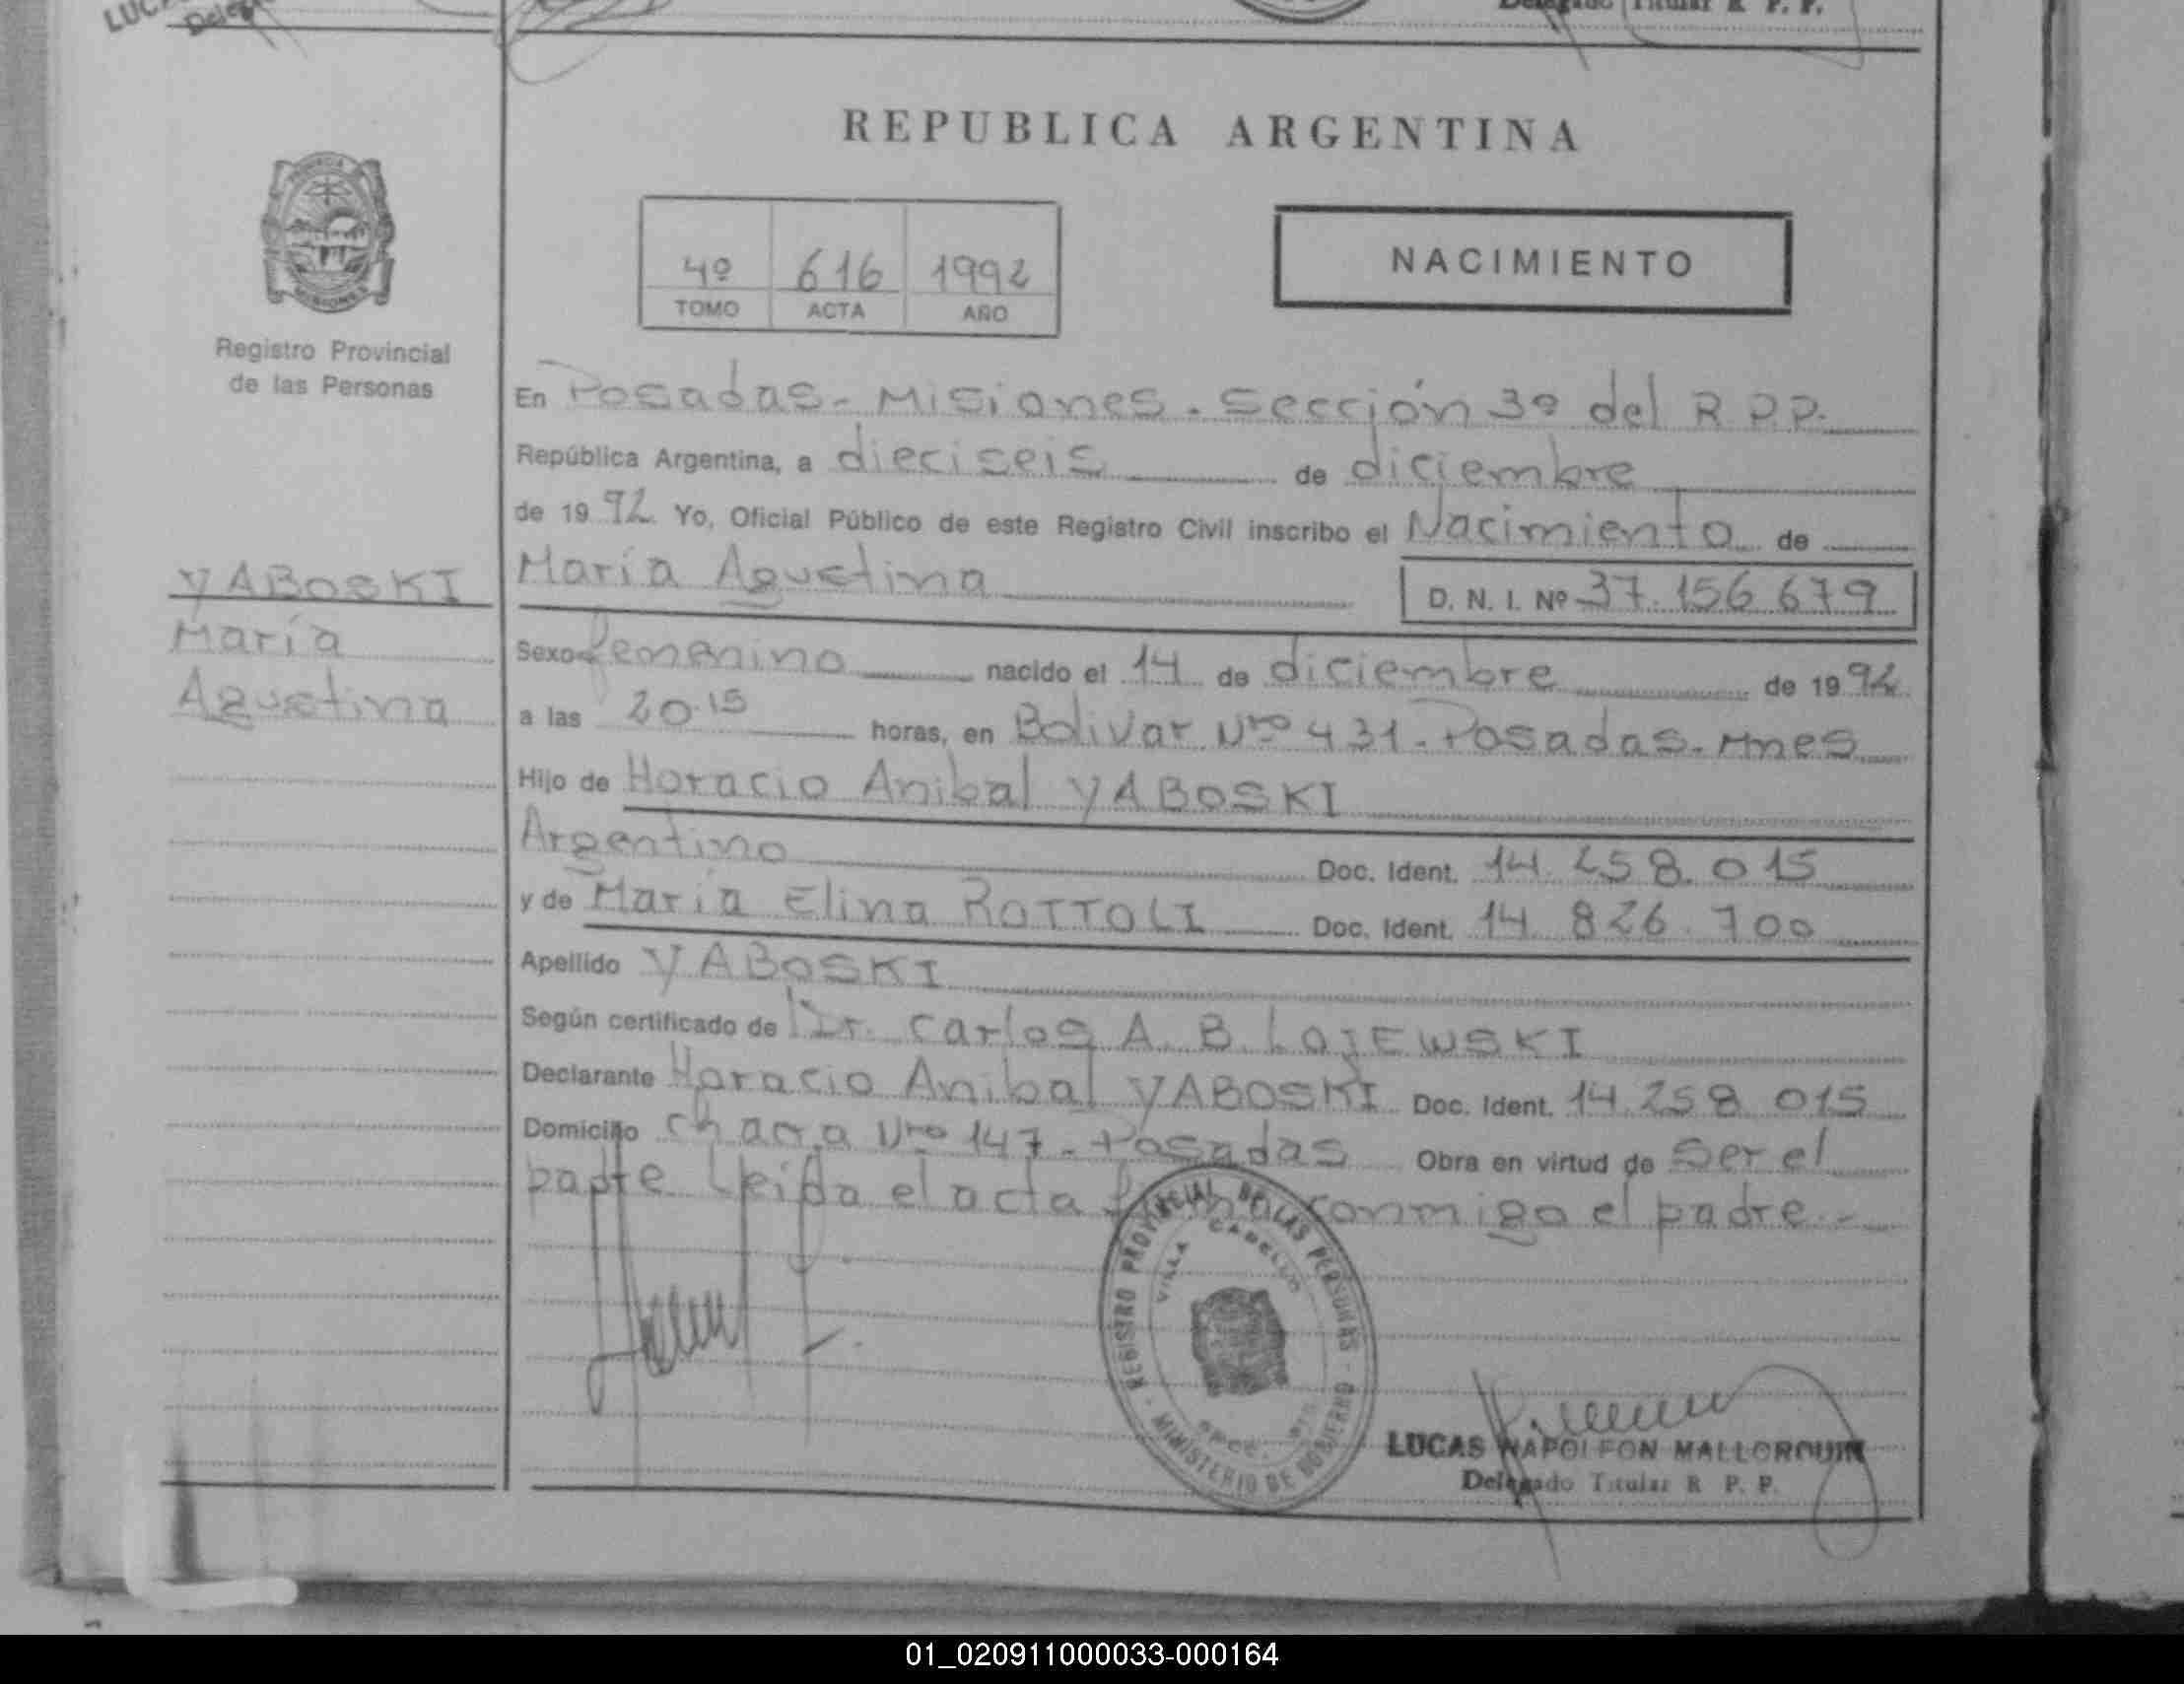 Delegado Titular R. P. P.
REPUBLICA ARGENTINA
4º 616 1992
TOMO ACTA AÑO
NACIMIENTO
Registro Provincial
de las Personas
En Posadas - Misiones - Sección 3º del R.P.P.
República Argentina, a dieciseis de diciembre
de 1992 Yo, Oficial Público de este Registro Civil inscribo el Nacimiento de
María Agustina D. N. I. Nº 37.156.679
YABOSKI
María
Agustina
Sexo femenino nacido el 14 de diciembre de 1992
a las 20.15 horas, en Bolivar Nro 431 - Posadas - Mnes
Hijo de Horacio Anibal YABOSKI
Argentino Doc. Ident. 14.258.015
y de María Elina ROTTOLI Doc. Ident. 14.826.700
Apellido YABOSKI
Según certificado de Dr. Carlos A. B. LOJEWSKI
Declarante Horacio Anibal YABOSKI Doc. Ident. 14.258.015
Domicilio Chacra Nro 147 - Posadas Obra en virtud de Ser el
padre Leida el acta firma conmigo el padre.-
REGISTRO PROVINCIAL DE LAS PERSONAS - MINISTERIO DE GOBIERNO
VILLA CABELLO
LUCAS NAPOLEON MALLORQUIN
Delegado Titular R. P. P.
01_020911000033-000164